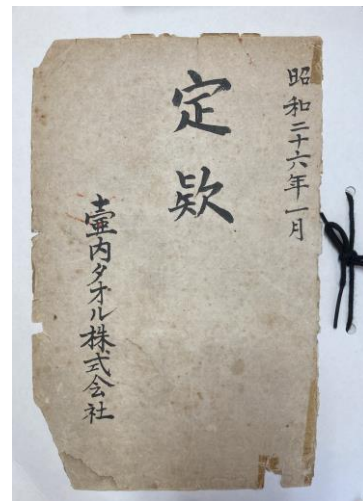 昭和二十六年一月
定欵
壷内タオル株式会社